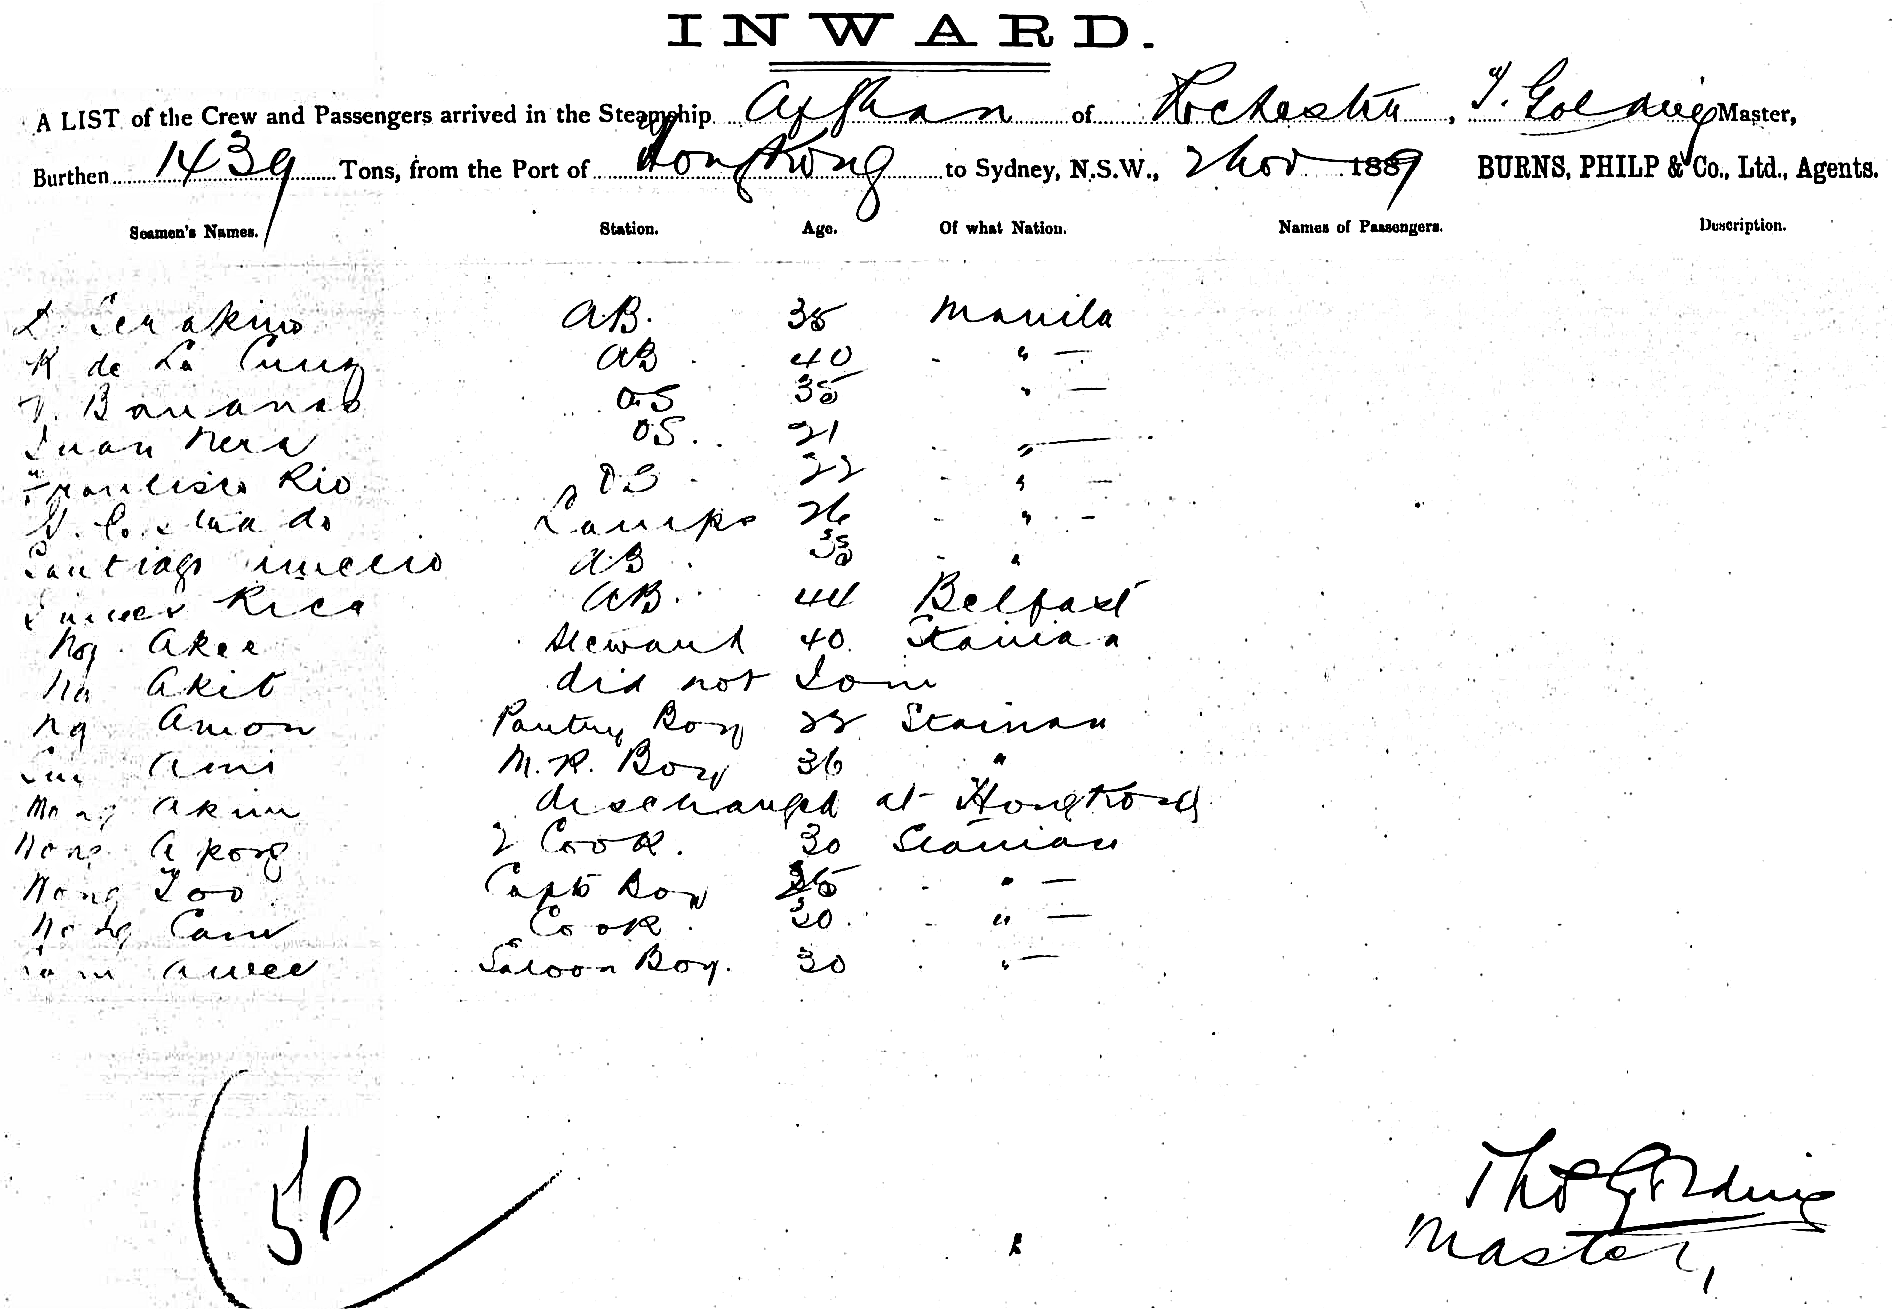 INWARD.
A LIST of the Crew and Passengers arrived in the Steamship Afghan of Rochester, T. Golding Master,
Burthen 1439 Tons, from the Port of Hong Kong to Sydney, N.S.W., 2 Nov 1889 BURNS, PHILP & Co., Ltd., Agents.
Seamen's Names. Station. Age. Of what Nation. Names of Passengers. Description.
AB. 35 Manila
R de La Cruz AB 40 " —
Bananas OS 35 " —
Juan Nera OS.. 21 " —
Francisco Rio OS 22 " —
Lamps 26 " -
Santiago AB 35 "
James Rice AB. 44 Belfast
Ng Akee Steward 40
Ng Akit did not Join
Ng Amon Pantry Boy 22
Ami M. R. Boy 36 "
Wong Akim discharged at HongKong
Wong Apong 2 Cook. 30
Wong Too Capts Boy " —
Wong Cam Cook. 30. " —
Awee Saloon Boy. 30 " —
50
Thos Golding
Master,